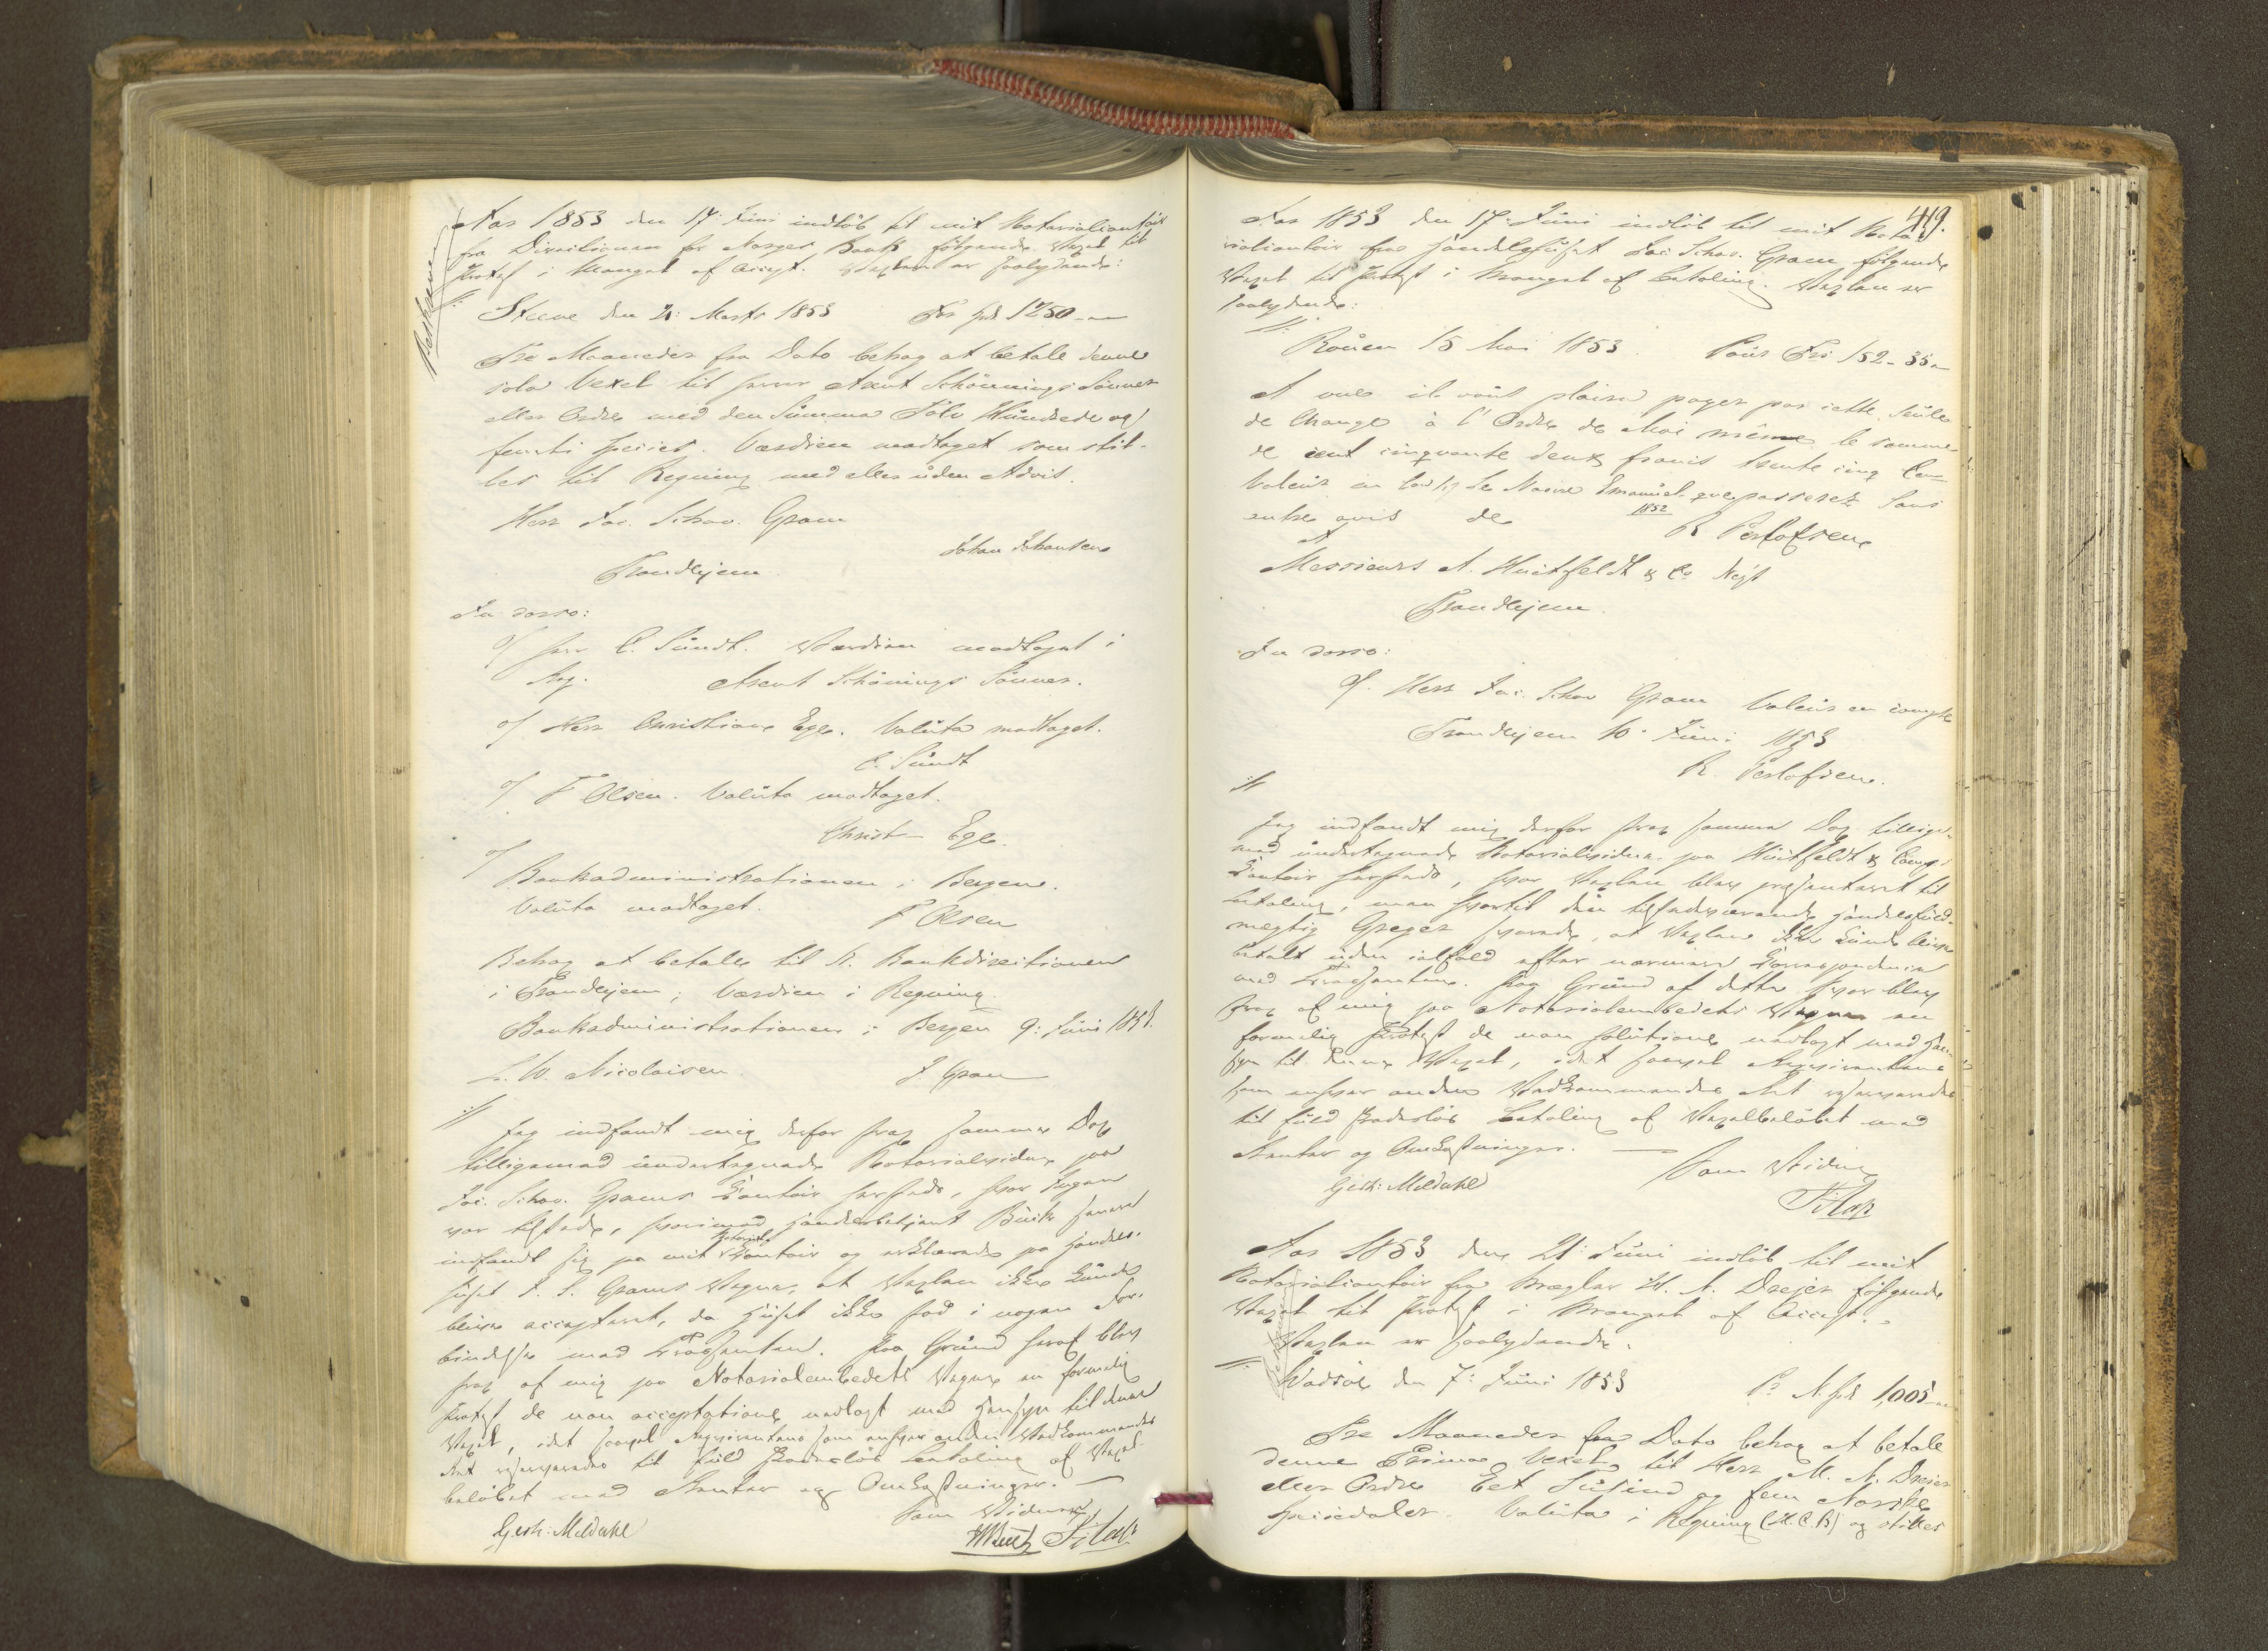 Beskreven
Aar 1853 den 17: Juni indløb til mit Notarialcontoir
fra Directionen for Norges Bank følgende Vexel til
Protest i Mangel af Accept. Vexlen er saalydende:
//: Steene den 21: Marts 1853 For Spd. 1250
Tre Maaneder fra Dato behag at betale denne
sola Vexel til Herrer Arent Schönnings Sønner
eller Ordre med den Summa Tolv Hundrede og
femti Species. Værdien modtaget som stil-
les til Regning med eller uden Advis.
Herr Jac. Schav. Gram
Johan Johansen
Trondhjem
In dorso:
o/ Herr C. Sundt. Værdien modtaget i
Reg. Arent Schönings Sønner.
o/ Herr Christian Ege. Valuta modtaget.
C. Sundt
o/ F Olsen. Valuta modtaget.
Christ Ege.
o/ Bankadministrationen i Bergen.
Valuta modtaget. F Olsen
Behag at betale til N. Bankdirectionen
i Trondhjem; Værdien i Regning.
Bankadministrationen i Bergen 9: Juni 1853.
L. W. Nicolaisen J Gran
:// Jeg indfandt mig derfor strax samme Dag
tilligemed undertegnede Notarialvidne paa
Jac. Schav. Grams Contoir hersteds, hvor Ingen
var tilstede, hvorimod Handelsbetjent Buck senere
indfandt sig paa mit Notarial Contoir og erklærede paa Handels-
huset J. S. Grams Vegne, at Vexlen ikke kunde
blive accepteret, da Huset ikke stod i nogen For-
bindelse med Trassenten. Paa Grund heraf blev
strax af mig paa Notarialembedets Vegne en formelig
Protest de non acceptatione nedlagt med Hensyn til denne
Vexel, idet saavel Reqvirentens som enhver anden Vedkommendes
Ret reserveredes til fuld skadesløs Betaling af Vexel-
beløbet med Renter og Omkostninger. —
Som Vidner
Gesk: Meldahl

419.
Aar 1853 den 17: Juni indløb til mit Nota-
rialcontoir fra Handelshuset Jac. Schav. Gram følgende
Vexel til Protest i Mangel af Betaling. Vexlen er
saalydende:
//: Rouen 15 Mai 1853. Pour Frs 152-35
A vue il vous plaira payer par cette seule
de Change à l' Ordre de Moi même la somme
de cent cinquante deux francs trente cinq Cen
Valeur en le Navire Emanuel que passerez sans
1852
autre avis de R Perlofsen
A
Messieurs A. Huitfeldt & Co Negt
Trondhjem.
In dorso:
o/. Herr Jac. Schav Gram Valeur en compte
Trondhjem 10. Juni 1853
R. Perlofsen.
://
Jeg indfandt mig derfor strax samme Dag tillige-
med undertegnede Notarialvidne paa Huitfeldt & Comp.
Contoir hersteds, hvor Vexlen blev præsenteret til
Betaling, men hvortil den tilstedeværende Handelsfuld-
mægtig Greger svarede, at Vexlen ikke kunde blive
betalt uden ialfald efter nærmere Correspondence
med Trassenten. Paa Grund af dette Svar blev
strax af mig paa Notarialembedets Vegne en
formelig Protest de non solutione nedlagt med Hen-
syn til denne Vexel, idet saavel Reqvirentens
som enhver anden Vedkommendes Ret reserveredes
til fuld skadesløs Betaling af Vexelbeløbet med
Renter og Omkostninger. —
Som Vidne
Gesk: Meldahl
Aar 1853 den 21: Juni indløb til mit
Notarialcontoir fra Mægler H. A. Dreyer følgende
Vexel til Protest i Mangel af Accept.
Vexlen er saalydende.
//: Wadsøe den 7: Juni 1853 Po N. Spd. 1,005
Tre Maaneder fra Dato behag at betale
denne Prima Vexel til Herr M. A. Dreier
eller Ordre Eet Tusind og fem Norske
Speciedaler. Valuta i Regning (A. C. B) og stilles